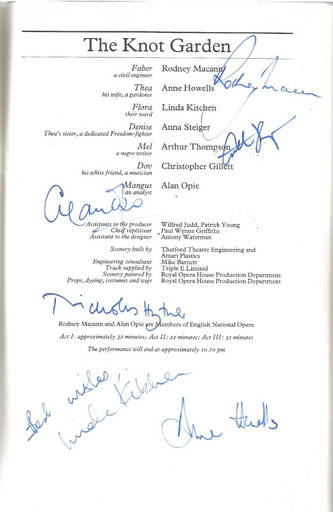 The Knot Garden
Faber Rodney Macann
a civil engineer
Thea Anne Howells
his wife, a gardener
Flora Linda Kitchen
their ward
Denise Anna Steiger
Thea's sister, a dedicated Freedom-fighter
Mel Arthur Thompson
a negro writer
Dov Christopher Gillett
his white friend, a musician
Mangus Alan Opie
an analyst
Rodney Macann
Assistants to the producer Wilfred Judd, Patrick Young
Chief répétiteur Paul Wynne Griffiths
Assistant to the designer Antony Waterman
Scenery built by Thetford Theatre Engineering and
Amari Plastics
Engineering consultant Mike Barnett
Track supplied by Triple E Limited
Scenery painted by Royal Opera House Production Department
Props, dyeing, costumes and wigs Royal Opera House Production Department
Nicholas Hytner
Rodney Macann and Alan Opie are Members of English National Opera
Act I: approximately 32 minutes; Act II: 22 minutes; Act III: 31 minutes
The performance will end at approximately 10.10 pm
Best wishes
Linda Kitchen
Anne Howells